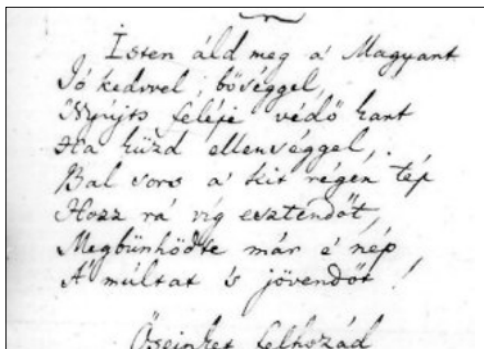 Isten áld meg a' Magyart
Jó kedvvel, bőséggel,
Nyújts feléje védő kart
Ha küzd ellenséggel,
Bal sors a' kit régen tép
Hozz rá víg esztendőt,
Megbünhödte már e' nép
A' múltat 's jövendőt!
Őseinket felhozád